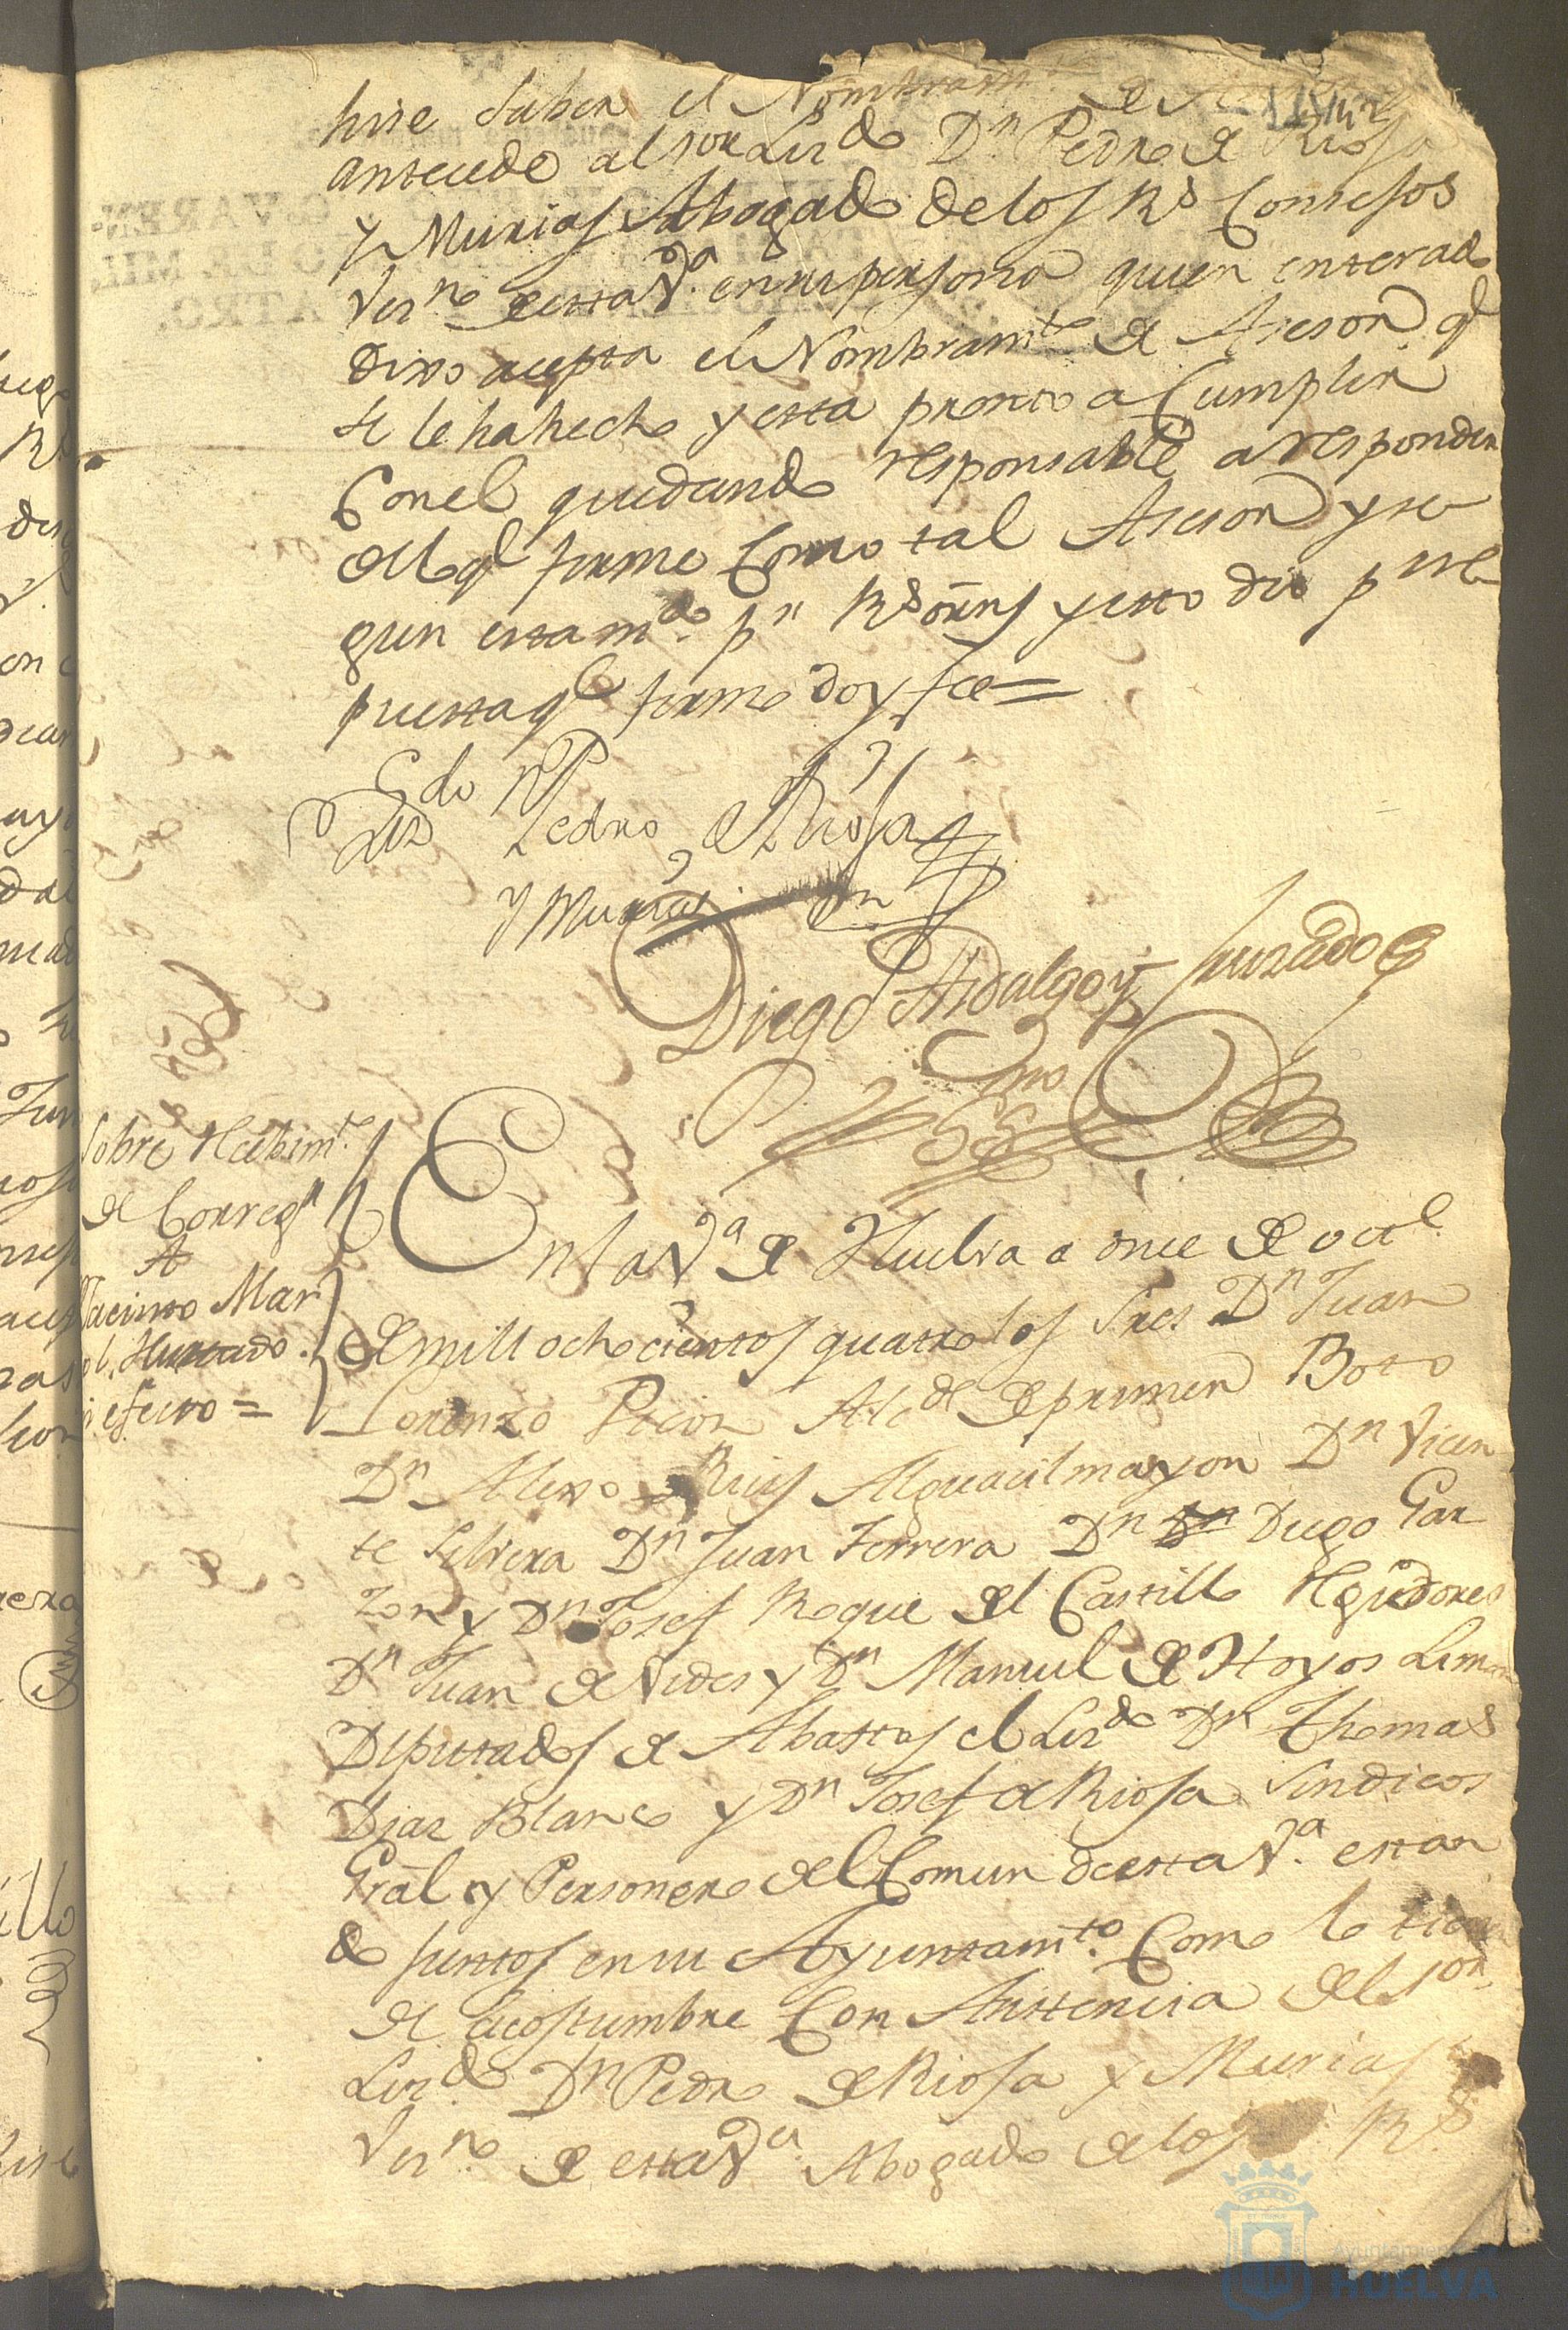 hise saber el Nombram.to de
antecede al sor Lizdo Dn Pedro de Riosa
y Murias Abogado delos Rs Consejos
Vezno de esta Va en su persona quien enterado
dixo acepta el Nombramto de Asesor qe
se le ha hecho y esta pronto a Cumplir
Con el quedando responsable a responder
de lo qe firme Como tal Asesor y se
gun esta mdo pr Rs orns y esto dio pr res
puesta qe firmo doy fee =
Lizdo Dn Pedro de Riosa
y Murias
Diego Hidalgo y Jurado
Sno
Sobre Recibimto
de Corregr
A
Jacinto Mar
Hurtado.
efecto =
En la Va de Huelva a once de octe
de mill ochocientos quatro los Sres Dn Juan
Lorenzo Picon Alcde de primer Boto
Dn Alexo Ruiz Alguacil mayor Dn Vicen
te Silvera Dn Juan Ferrera Dn Dn Diego Gar
zon y Dn Josef Roque del Castillo Rexidores
Dn Juan de Vides y Dn Manuel de Hoyos Limon
Diputados de Abastos el Lizdo Dn Thomas
Diaz Blanco y Dn Josef de Riosa Sindicos
Gral y Personero del Comun de esta Va estan
do juntos en su Ayuntamto Como lo tien
de Costumbre Con Asistencia del sor
Lizdo Dn Pedro de Riosa y Murias
Vezno de esta Va Abogado de los Rs
Ayuntamiento
HUELVA